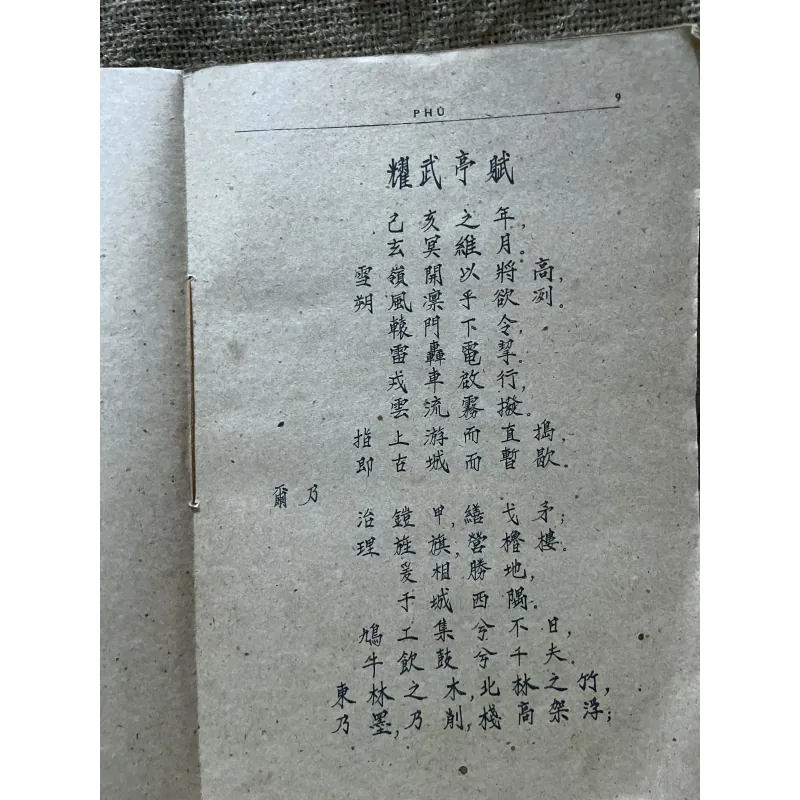 PHÚ 9
耀武亭賦
己亥之年,
玄冥維月。
雪嶺開以將高,
朔風凛乎欲冽。
轅門下令,
雷轟電挈。
戎車啟行,
雲流霧撥。
指上游而直搗,
即古城而暫歇。
爾乃
治鎧甲,繕戈矛;
理旌旗,營櫓樓。
爰相勝地,
于城西隅。
鳩工集兮不日,
牛飲鼓兮千夫.
東林之木,北林之竹,
乃墨,乃削,棧高架浮;